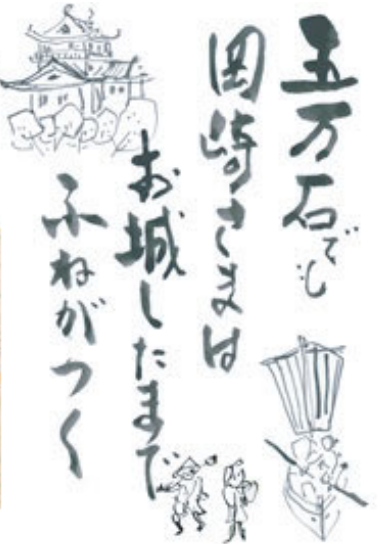 五万石でも
岡崎さまは
お城したまで
ふねがつく